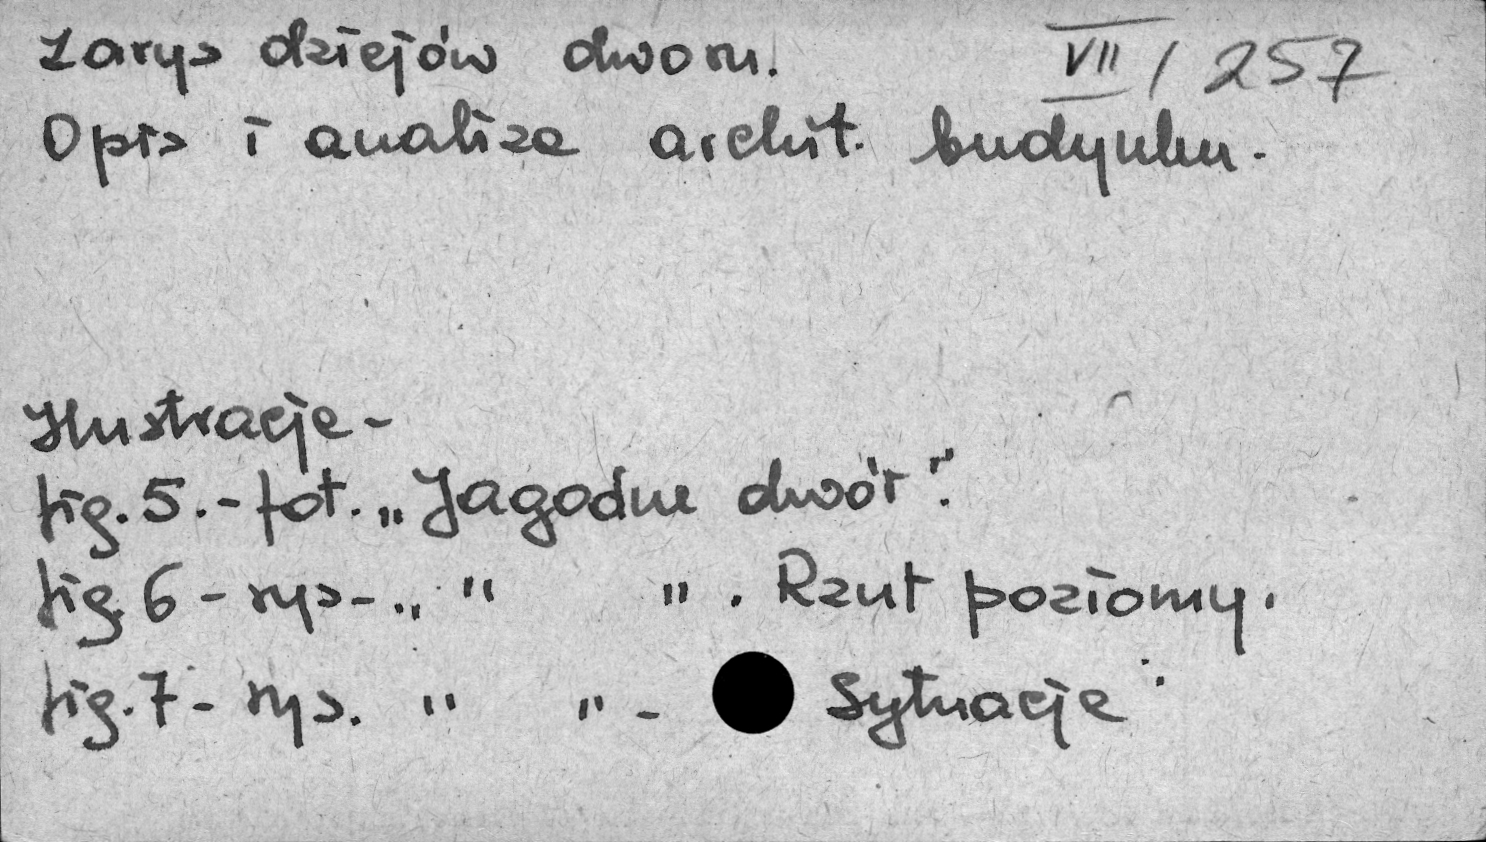 Zarys dziejów dworu. VII / 257
Opis i analiza archit. budynku.
Ilustracje -
fig. 5. - fot. „Jagodne dwór".
fig. 6 - rys - „ " " . Rzut poziomy.
fig. 7 - rys. " " - Sytuacja